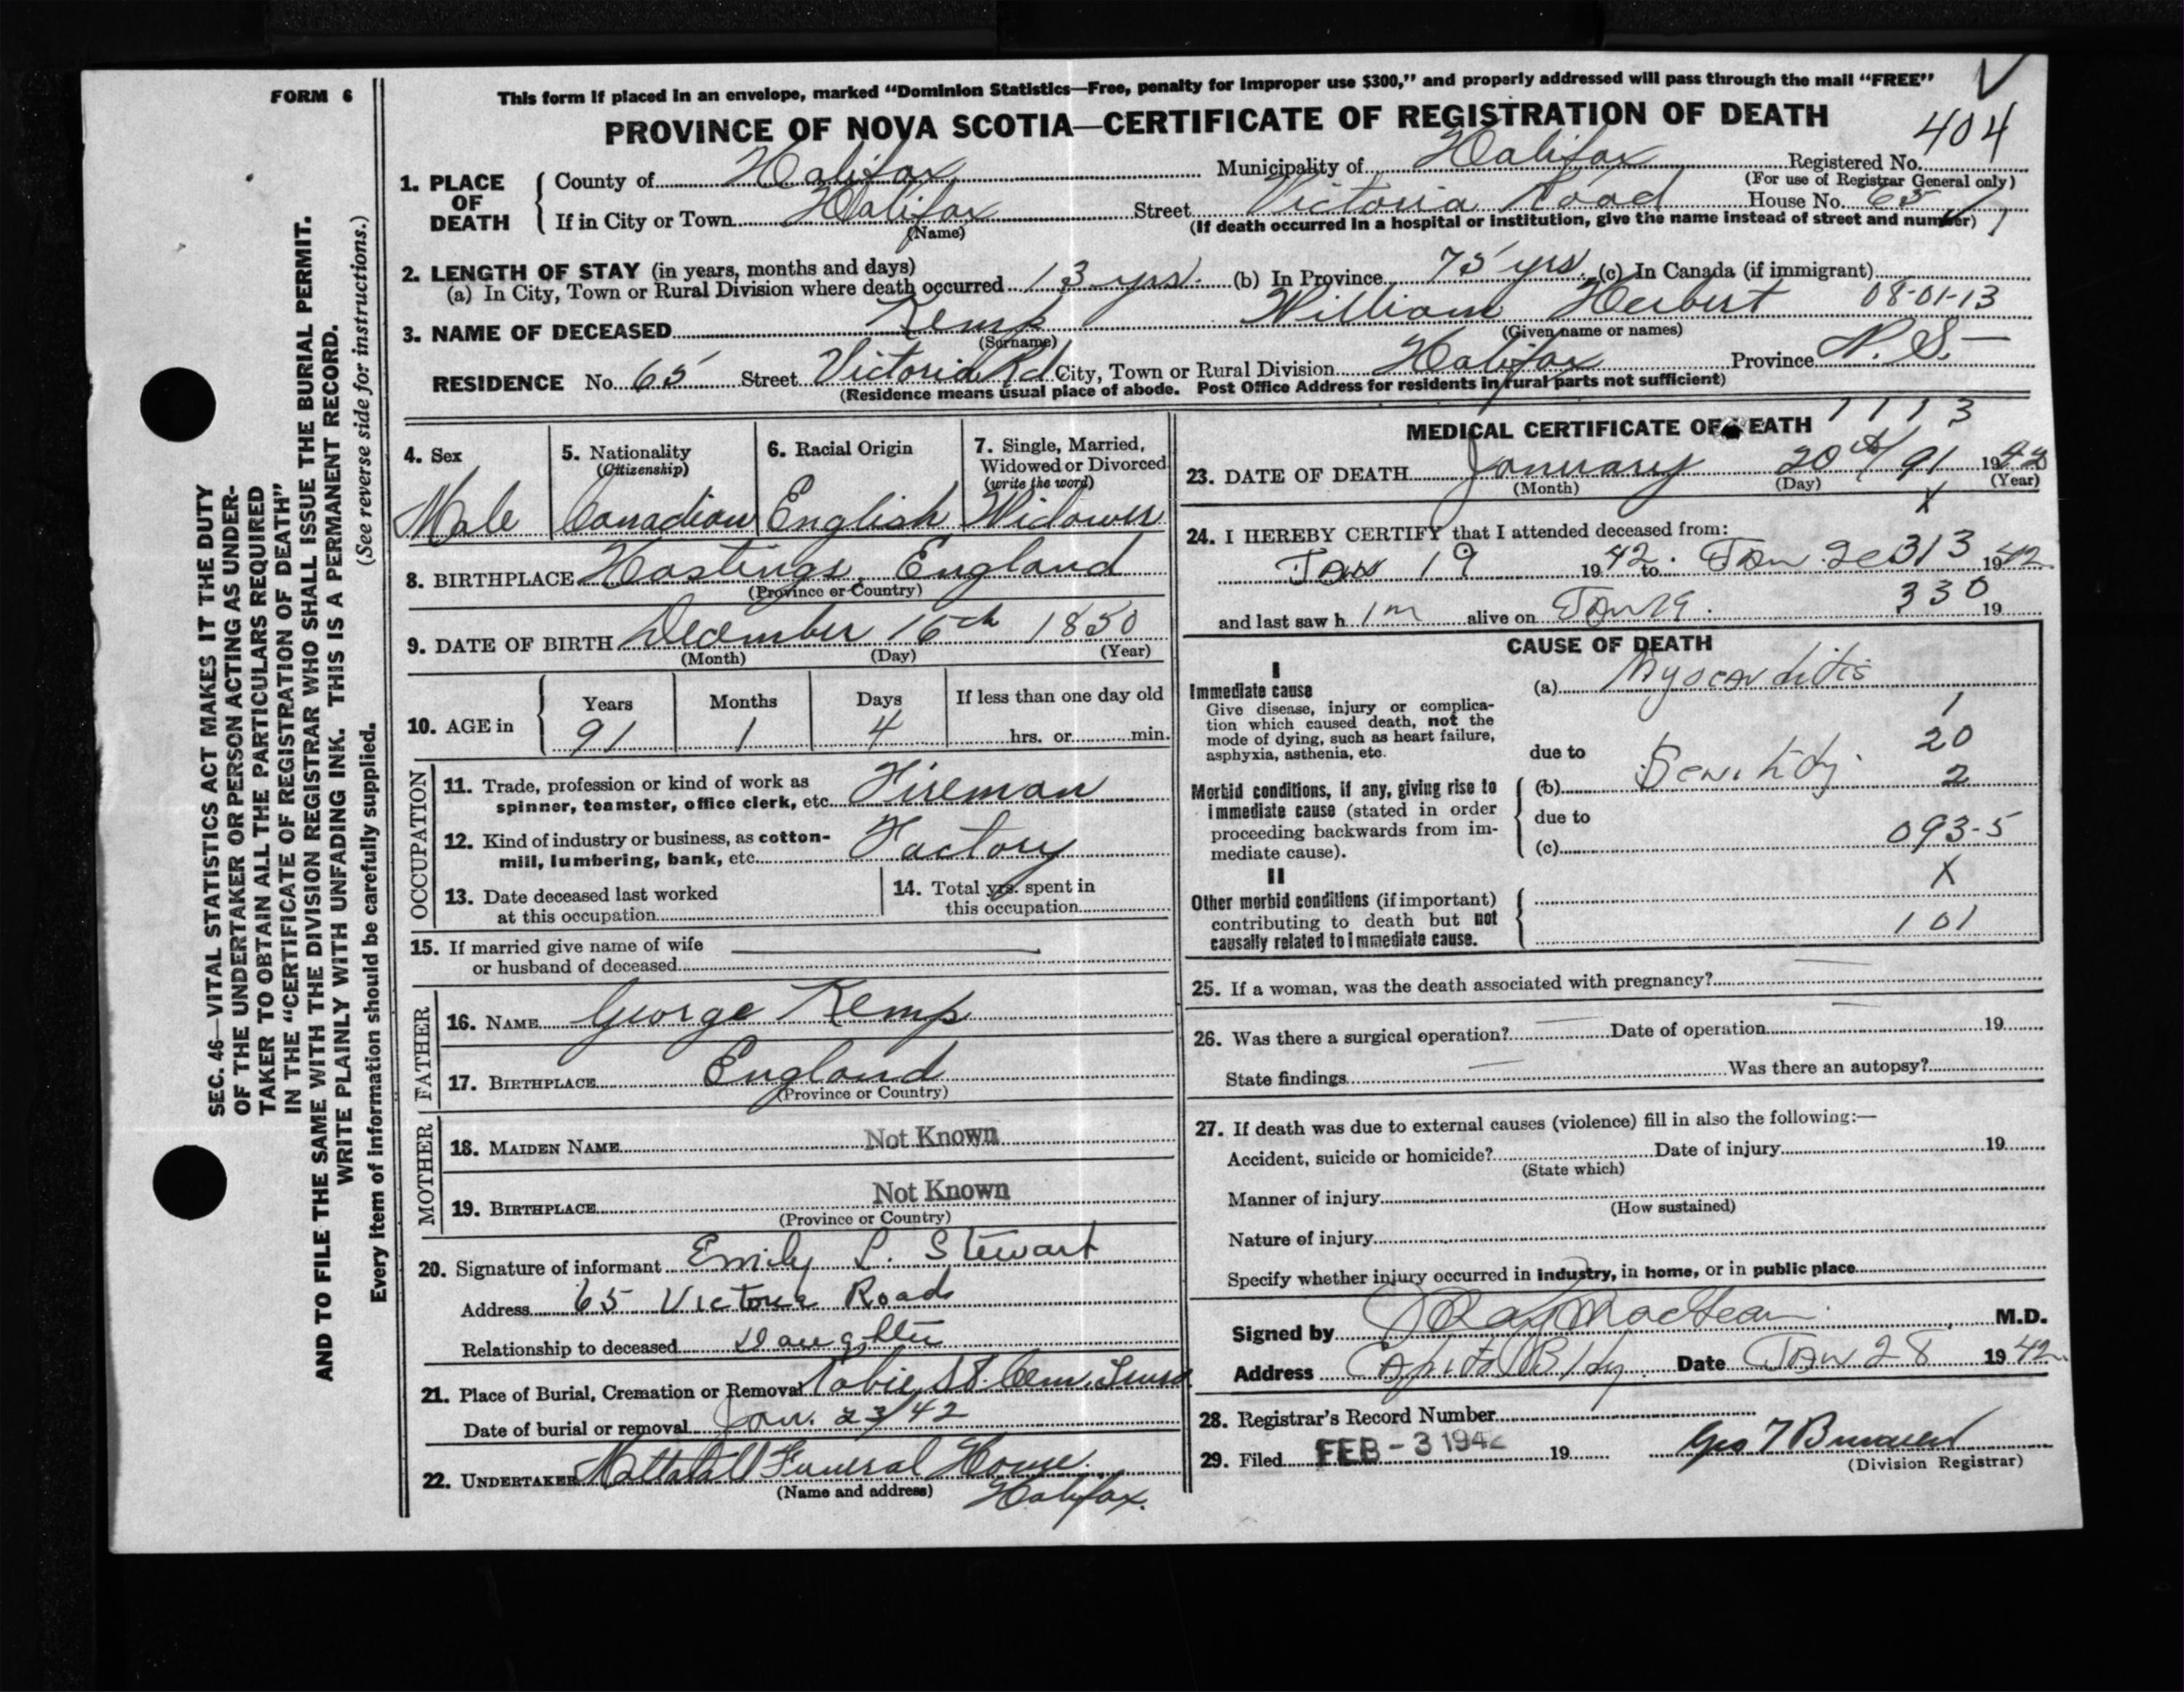 FORM 6
This form if placed in an envelope, marked “Dominion Statistics—Free, penalty for improper use $300,” and properly addressed will pass through the mail “FREE”
PROVINCE OF NOVA SCOTIA—CERTIFICATE OF REGISTRATION OF DEATH
404
1. PLACE OF DEATH
County of Halifax Municipality of Halifax Registered No.
(For use of Registrar General only)
If in City or Town Halifax Street Victoria Road House No. 65
(Name) (If death occurred in a hospital or institution, give the name instead of street and number)
2. LENGTH OF STAY (in years, months and days)
(a) In City, Town or Rural Division where death occurred 13 yrs. (b) In Province 75 yrs (c) In Canada (if immigrant)
08-01-13
3. NAME OF DECEASED Kemp William Herbert
(Surname) (Given name or names)
RESIDENCE No. 65 Street Victoria Rd City, Town or Rural Division Halifax Province N. S.
(Residence means usual place of abode. Post Office Address for residents in rural parts not sufficient)
4. Sex
Male
5. Nationality
(Citizenship)
Canadian
6. Racial Origin
English
7. Single, Married,
Widowed or Divorced
(write the word)
Widower
8. BIRTHPLACE Hastings, England
(Province or Country)
9. DATE OF BIRTH December 16th 1850
(Month) (Day) (Year)
10. AGE in
Years Months Days If less than one day old
91 1 4 hrs. or min.
OCCUPATION
11. Trade, profession or kind of work as
spinner, teamster, office clerk, etc. Fireman
12. Kind of industry or business, as cotton-
mill, lumbering, bank, etc. Factory
13. Date deceased last worked
at this occupation
14. Total yrs. spent in
this occupation
15. If married give name of wife
or husband of deceased
FATHER
16. NAME George Kemp
17. BIRTHPLACE England
(Province or Country)
MOTHER
18. MAIDEN NAME Not Known
19. BIRTHPLACE Not Known
(Province or Country)
20. Signature of informant Emily L. Stewart
Address 65 Victoria Road
Relationship to deceased Daughter
21. Place of Burial, Cremation or Removal Robie St. Cem. Truro
Date of burial or removal Jan. 23/42
22. UNDERTAKER Mattatall Funeral Home.
(Name and address) Halifax.
MEDICAL CERTIFICATE OF DEATH
1113
23. DATE OF DEATH January 20th 91 1942
(Month) (Day) (Year)
X
24. I HEREBY CERTIFY that I attended deceased from:
Jan 19 1942 to Jan 20 313 1942
and last saw him alive on Jan 19. 330 19
CAUSE OF DEATH
I
Immediate cause
Give disease, injury or complica-
tion which caused death, not the
mode of dying, such as heart failure,
asphyxia, asthenia, etc.
(a) Myocarditis
1
due to
20
Morbid conditions, if any, giving rise to
immediate cause (stated in order
proceeding backwards from im-
mediate cause).
(b) Senility.
2
due to
(c) 093-5
X
II
Other morbid conditions (if important)
contributing to death but not
causally related to immediate cause.
101
25. If a woman, was the death associated with pregnancy?
26. Was there a surgical operation? Date of operation 19
State findings Was there an autopsy?
27. If death was due to external causes (violence) fill in also the following:—
Accident, suicide or homicide? Date of injury 19
(State which)
Manner of injury
(How sustained)
Nature of injury
Specify whether injury occurred in industry, in home, or in public place
Signed by J Ray MacLean M.D.
Address Capitol Bldg Date Jan 28 1942
28. Registrar's Record Number
29. Filed FEB -3 1942 19 Geo
(Division Registrar)
SEC. 46—VITAL STATISTICS ACT MAKES IT THE DUTY
OF THE UNDERTAKER OR PERSON ACTING AS UNDER-
TAKER TO OBTAIN ALL THE PARTICULARS REQUIRED
IN THE “CERTIFICATE OF REGISTRATION OF DEATH”
AND TO FILE THE SAME WITH THE DIVISION REGISTRAR WHO SHALL ISSUE THE BURIAL PERMIT.
WRITE PLAINLY WITH UNFADING INK. THIS IS A PERMANENT RECORD.
(See reverse side for instructions.)
Every item of information should be carefully supplied.